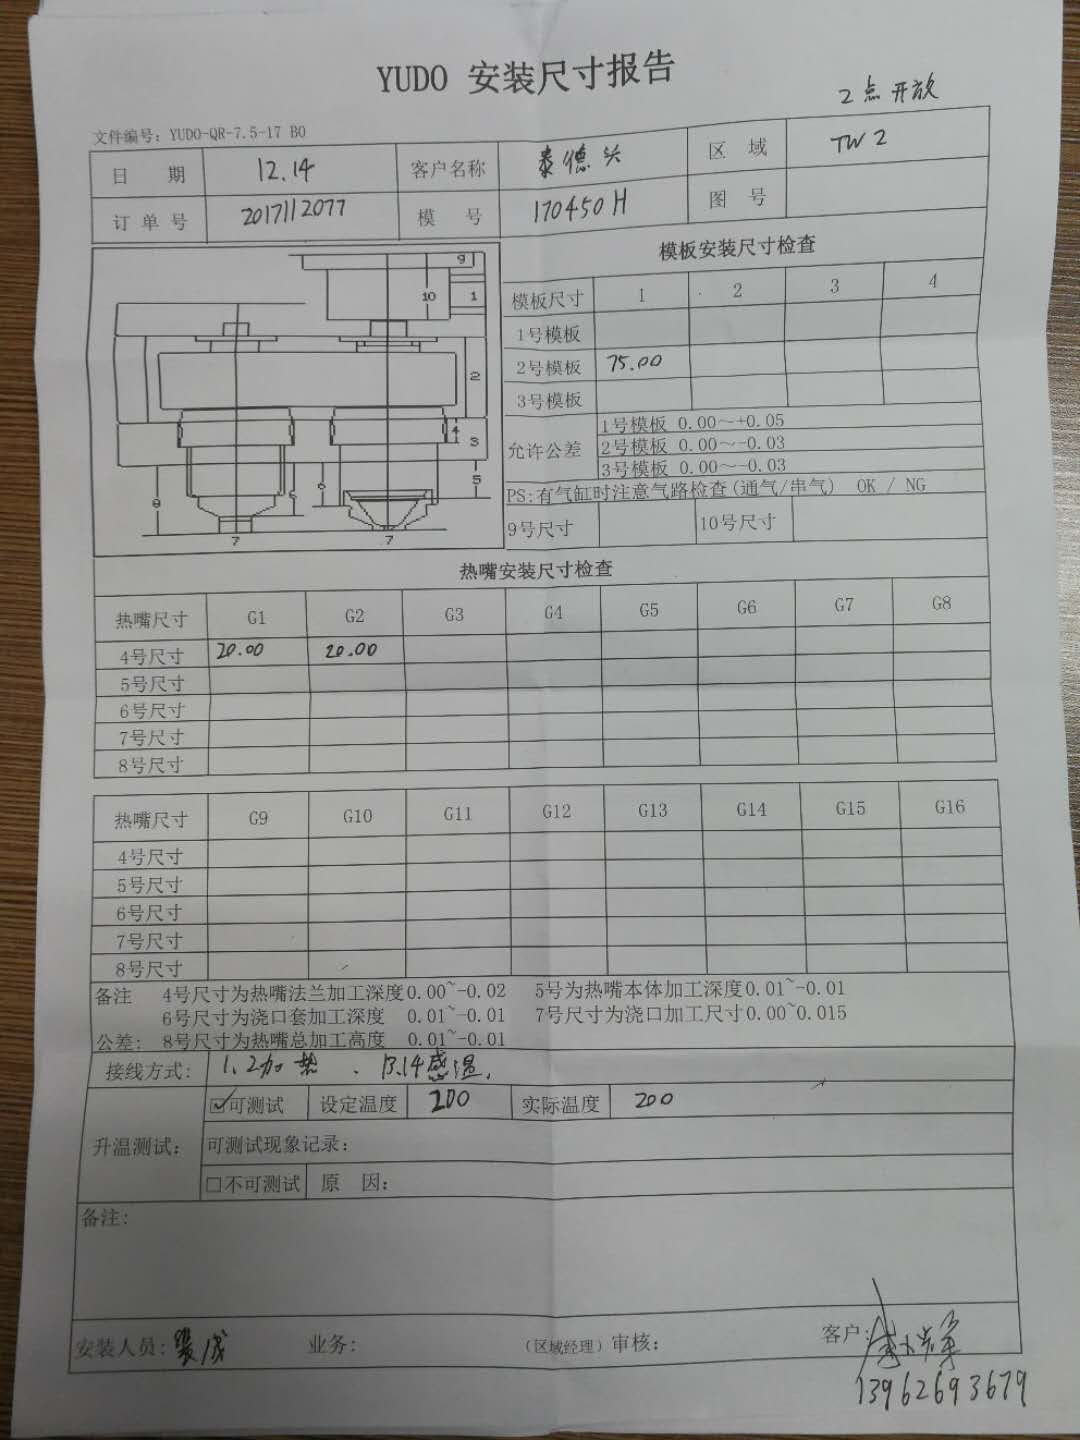 YUDO 安装尺寸报告
2点开放
文件编号：YUDO-QR-7.5-17 B0
日 期 12.14 客户名称 泰德兴 区 域 TW2
订单号 2017112077 模 号 170450H 图 号
模板安装尺寸检查
模板尺寸 1 2 3 4
1号模板
2号模板 75.00
3号模板
允许公差 1号模板 0.00～+0.05
2号模板 0.00～-0.03
3号模板 0.00～-0.03
PS:有气缸时注意气路检查(通气/串气) OK / NG
9号尺寸 10号尺寸
9
10 1
2
4 3
5
8 6 6
7 7
热嘴安装尺寸检查
热嘴尺寸 G1 G2 G3 G4 G5 G6 G7 G8
4号尺寸 20.00 20.00
5号尺寸
6号尺寸
7号尺寸
8号尺寸
热嘴尺寸 G9 G10 G11 G12 G13 G14 G15 G16
4号尺寸
5号尺寸
6号尺寸
7号尺寸
8号尺寸
备注 4号尺寸为热嘴法兰加工深度0.00~-0.02 5号为热嘴本体加工深度0.01~-0.01
6号尺寸为浇口套加工深度 0.01~-0.01 7号尺寸为浇口加工尺寸0.00~0.015
公差: 8号尺寸为热嘴总加工高度 0.01~-0.01
接线方式: 1.2加热 、13.14感温.
升温测试: ☑可测试 设定温度 200 实际温度 200
可测试现象记录:
□不可测试 原 因:
备注:
安装人员: 业务: (区域经理)审核: 客户:
13962693679